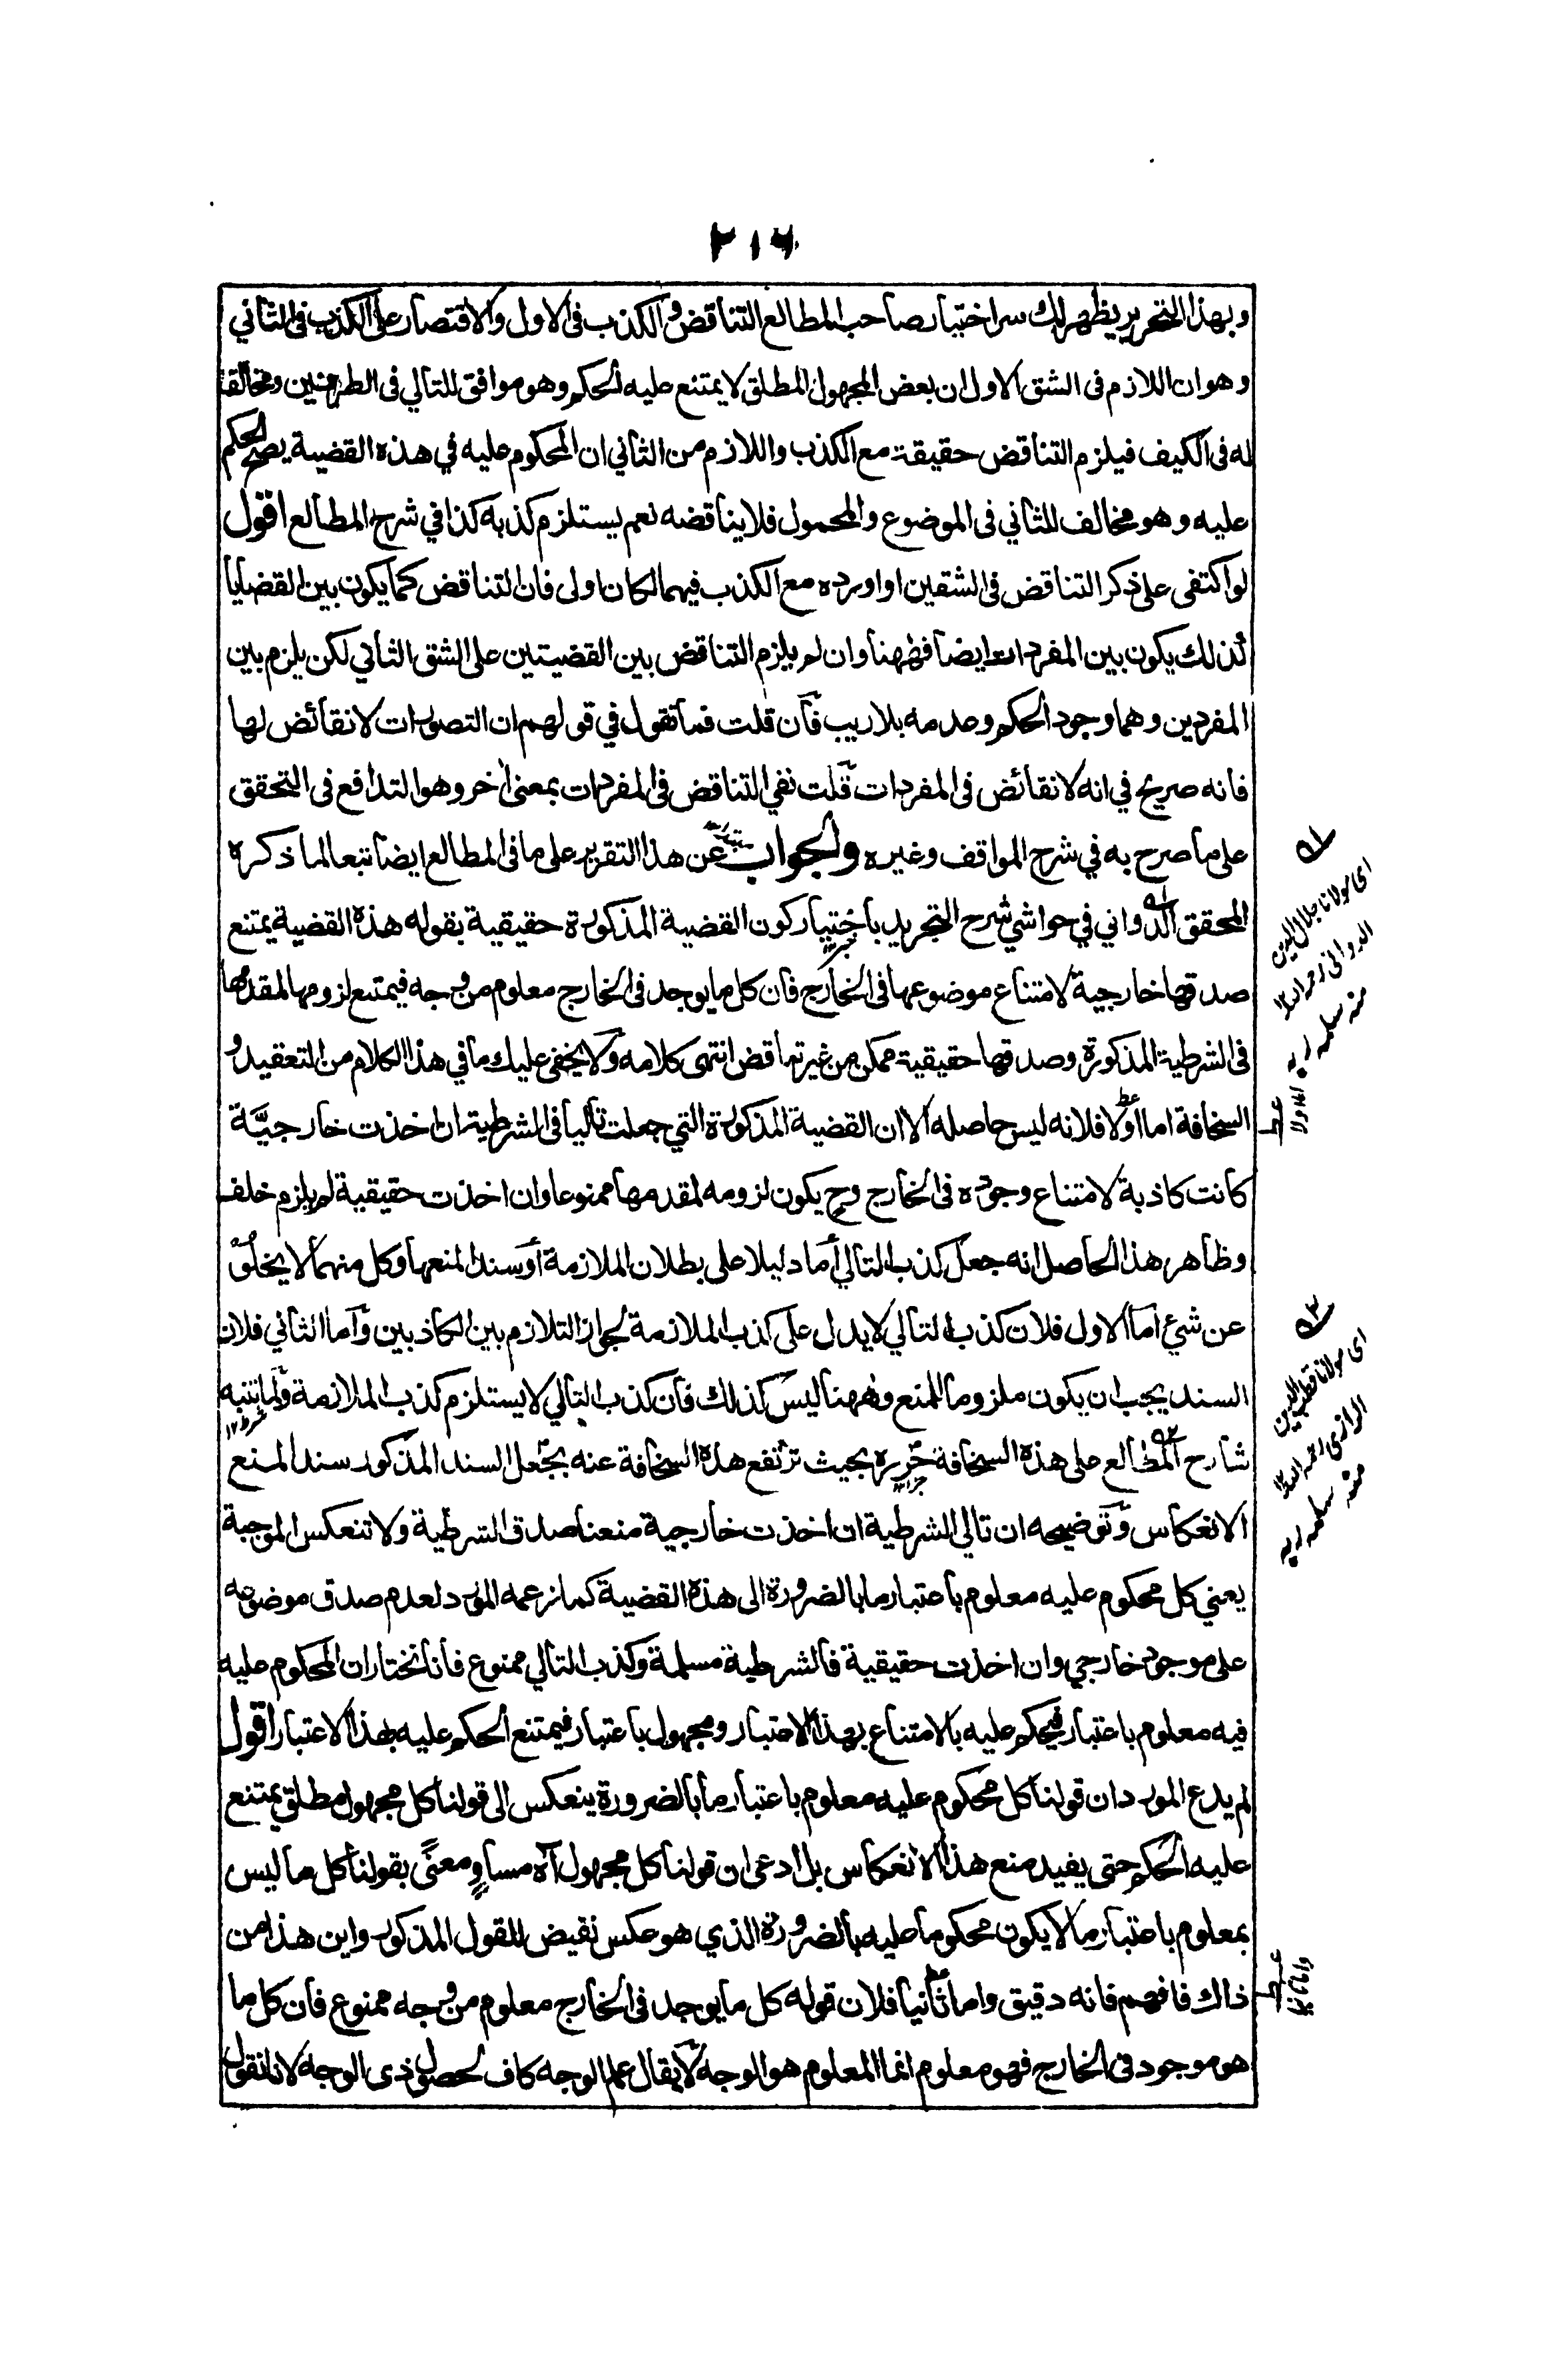 ٢١٦
وبهذا التحرير يظهر لك سر اختيار صاحب المطالع التناقض والكذب فى الاول والاقتصار على الكذب فى الثاني
وهو ان اللازم فى الشق الاول ان بعض المجهول المطلق لا يمتنع عليه الحكم وهو موافق للتالي فى الطرفين ومخالف
له فى الكيف فيلزم التناقض حقيقة مع الكذب واللازم من الثاني ان المحكوم عليه في هذه القضية يصح الحكم
عليه وهو مخالف للثاني فى الموضوع والمحمول فلا يناقضه نعم يستلزم كذبه كذا في شرح المطالع اقول
لو اكتفى على ذكر التناقض فى الشقين او اورده مع الكذب فيهما لكان اولى فان التناقض كما يكون بين القضايا
كذلك يكون بين المفردات ايضا فههنا وان لم يلزم التناقض بين القضيتين على الشق الثاني لكن يلزم بين
المفردين وهما وجود الحكم وعدمه بلا ريب فان قلت فما تقول في قولهم ان التصورات لا نقائض لها
فانه صريح في انه لا نقائض فى المفردات قلت نفي التناقض فى المفردات بمعنى اخر وهو التدافع فى التحقق
على ما صرح به في شرح المواقف وغيره والجواب عن هذا التقرير على ما فى المطالع ايضا تبعا لما ذكره
المحقق الدواني في حواشي شرح التجريد باختيار كون القضية المذكورة حقيقية بقوله هذه القضية يمتنع
صدقها خارجية لامتناع موضوعها فى الخارج فان كل ما يوجد فى الخارج معلوم من وجه فيمتنع لزومها لمقدمها
فى الشرطية المذكورة وصدقها حقيقية ممكن من غير تناقض انتهى كلامه ولا يخفى عليك ما في هذا الكلام من التعقيد و
السخافة اما اولا فلانه ليس حاصله الا ان القضية المذكورة التي جعلت تاليا فى الشرطية ان اخذت خارجيَّة
كانت كاذبة لامتناع وجوده فى الخارج وح يكون لزومه لمقدمها ممنوعا وان اخذت حقيقية لم يلزم خلف
وظاهر هذا الحاصل انه جعل كذب التالي اما دليلا على بطلان الملازمة أو سندا لمنعها وكل منهما لا يخلو
عن شئ اما الاول فلان كذب التالي لا يدل على كذب الملازمة لجواز التلازم بين الكاذبين وأما الثاني فلان
السند يجب ان يكون ملزوما للمنع وههنا ليس كذلك فان كذب التالي لا يستلزم كذب الملازمة ولما تنبه
شارح المطالع على هذه السخافة حرره بحيث ترتفع هذه السخافة عنه بجعل السند المذكور سندا لمنع
الانعكاس وتوضيحه ان تالي الشرطية ان اخذت خارجية منعنا صدق الشرطية ولا تنعكس الموجبة
يعني كل محكوم عليه معلوم باعتبار ما بالضرورة الى هذه القضية كما زعمه المورد لعدم صدق موضوعه
على موجود خارجي وان اخذت حقيقية فالشرطية مسلمة وكذب التالي ممنوع فانا نختار ان المحكوم عليه
فيه معلوم باعتبار فيحكم عليه بالامتناع بهذا الاعتبار ومجهول باعتبار فيمتنع الحكم عليه بهذا الاعتبار اقول
لم يدع المورد ان قولنا كل محكوم عليه معلوم باعتبار ما بالضرورة ينعكس الى قولنا كل مجهول مطلق يمتنع
عليه الحكم حتى يفيد منع هذا الانعكاس بل ادعى ان قولنا كل مجهول آه مساوٍ معنًى بقولنا كل ما ليس
بمعلوم باعتبار ما لا يكون محكوما عليه بالضرورة الذي هو عكس نقيض للقول المذكور واين هذا من
ذاك فافهم فانه دقيق واما ثانيا فلان قوله كل ما يوجد فى الخارج معلوم من وجه ممنوع فان كل ما
هو موجود فى الخارج فهو معلوم انما المعلوم هو الوجه لا يقال علم الوجه كاف لحصول ذى الوجه لانا نقول
اى مولانا جلال الدين
الدوانى رحمه الله ١٢
منه سلمه ربه
اى مولانا قطب الدين
الرازى رحمه الله ١٢
منه سلمه ربه